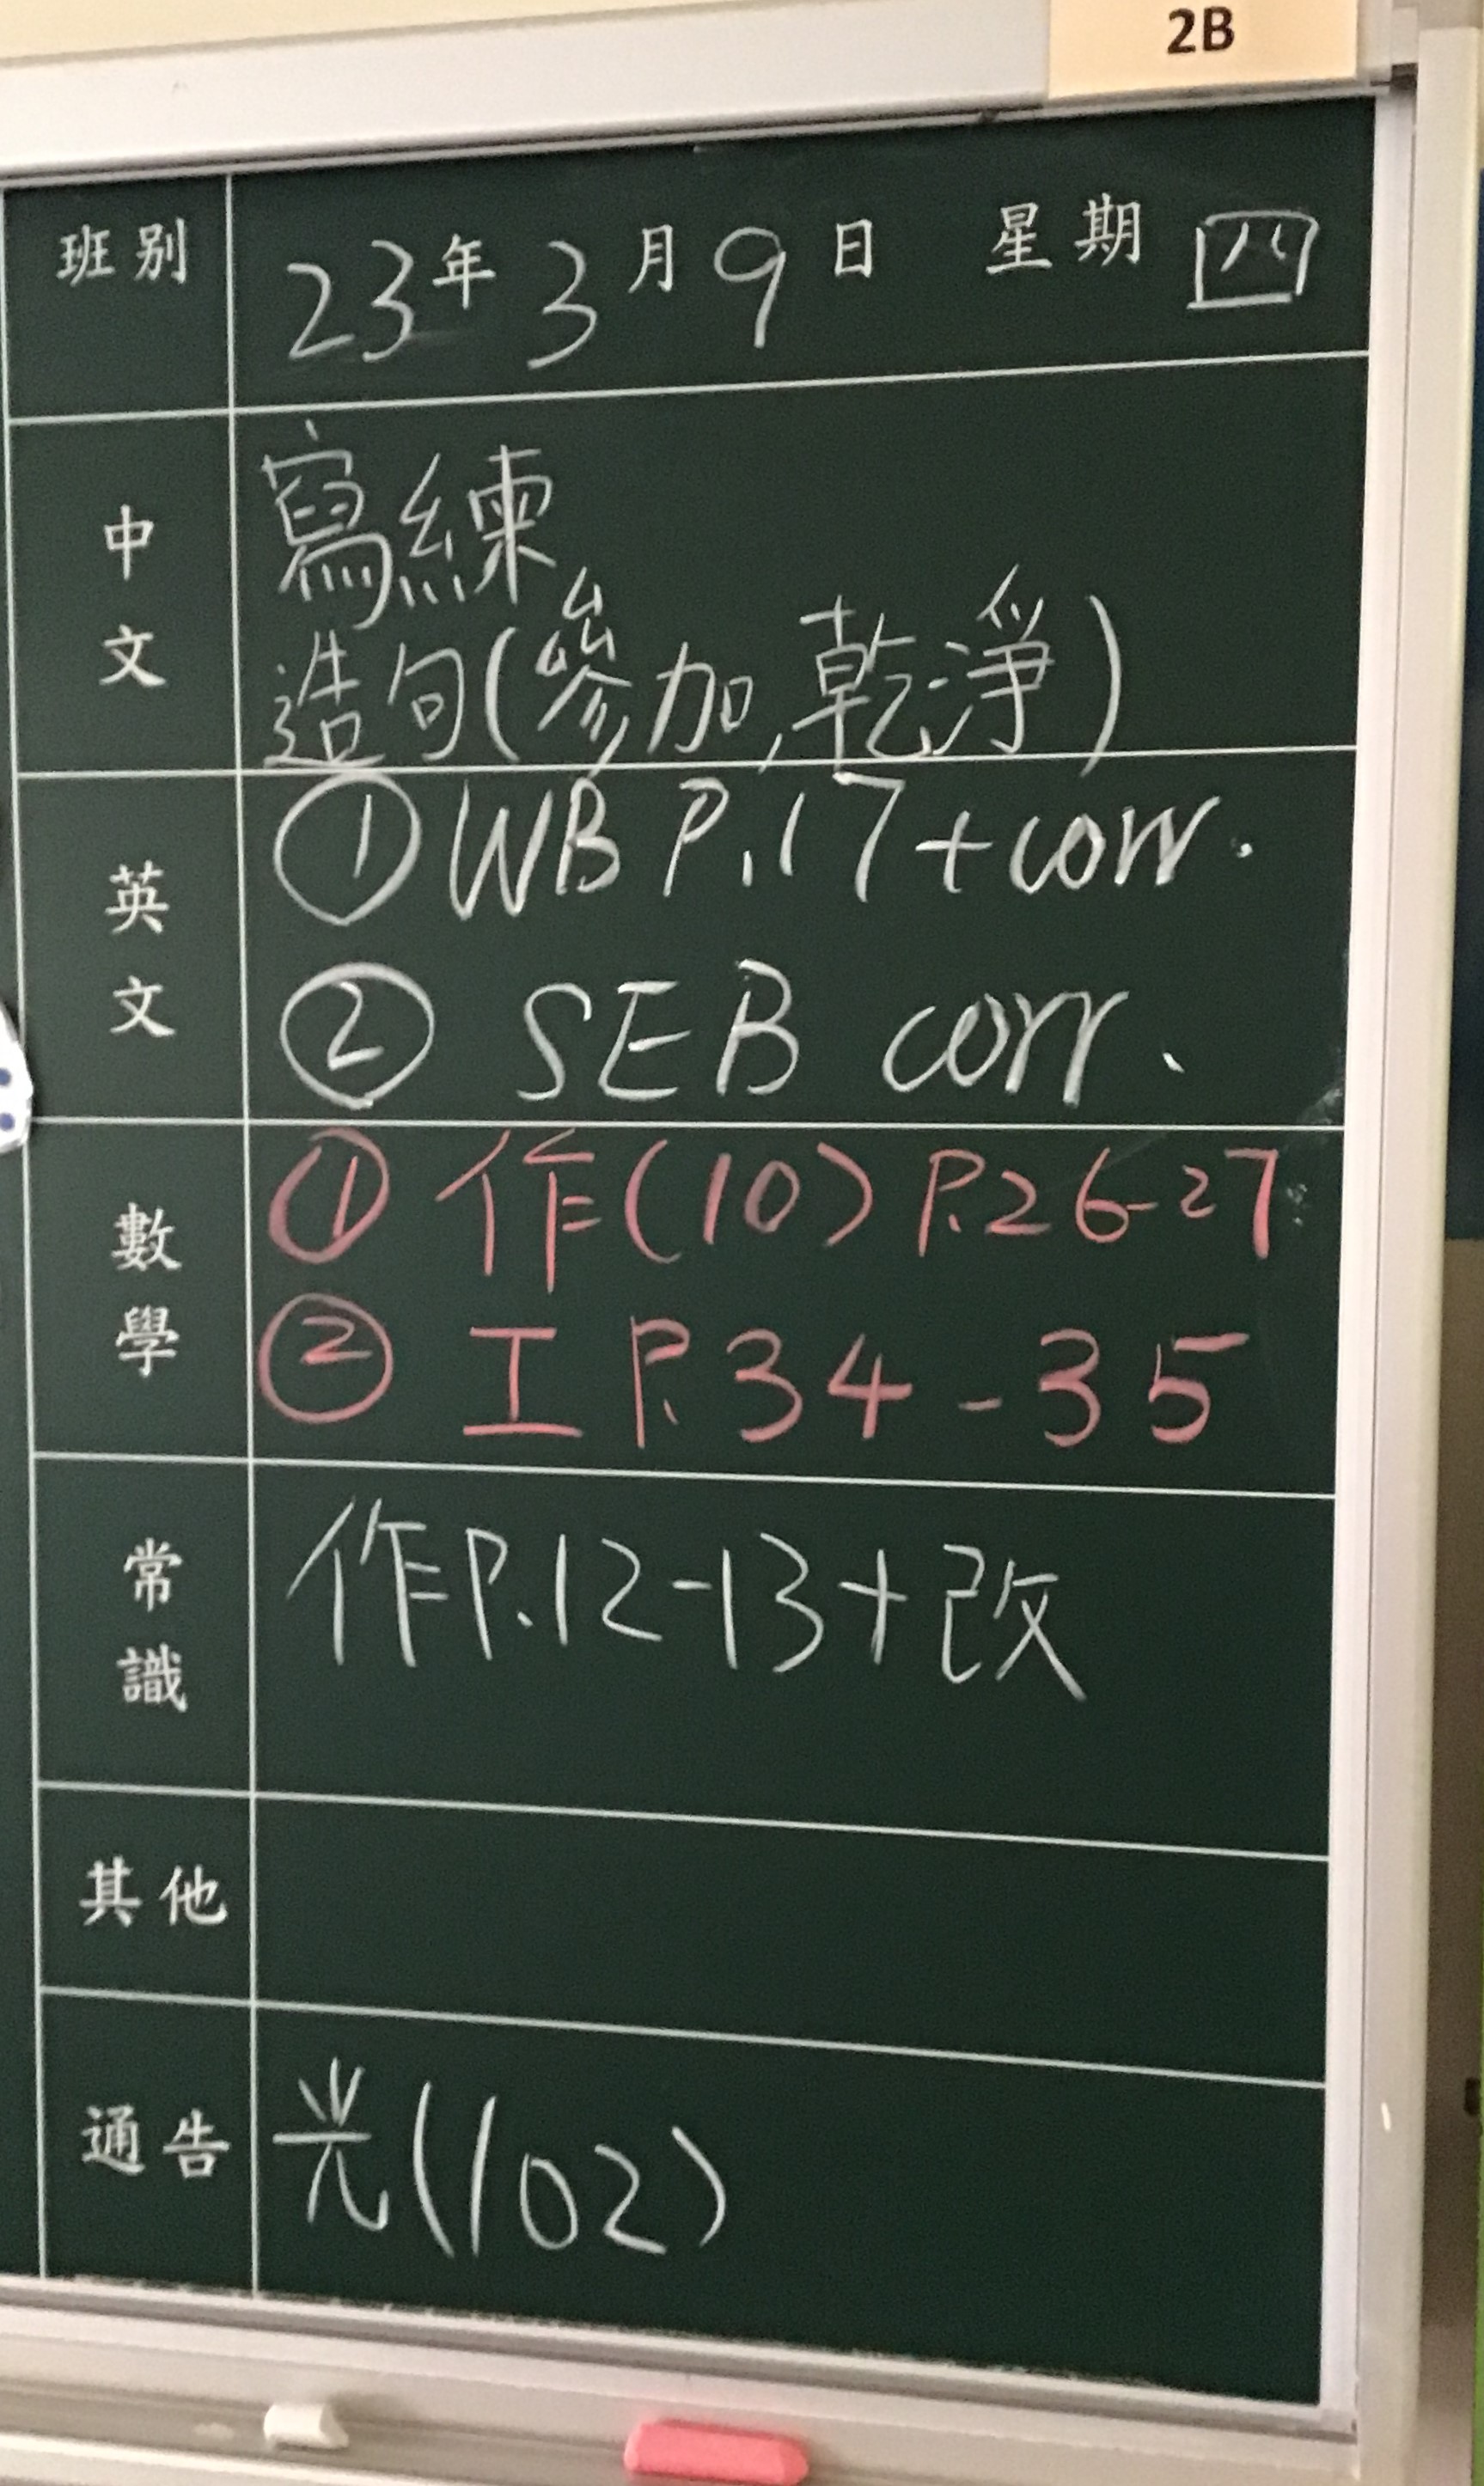 2B
班別 23年3月9日 星期四
中文 寫練
造句(參加,乾淨)
英文 ① WB P.17+corr.
② SEB corr.
數學 ① 作(10) P.26-27
② 工 P.34-35
常識 作P.12-13+改
其他
通告 光(102)